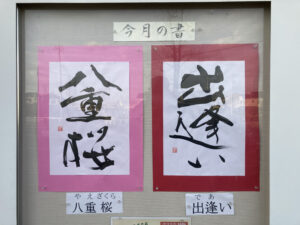 今月の書
八重桜
出逢い
やえざくら
八重桜
であ
出逢い